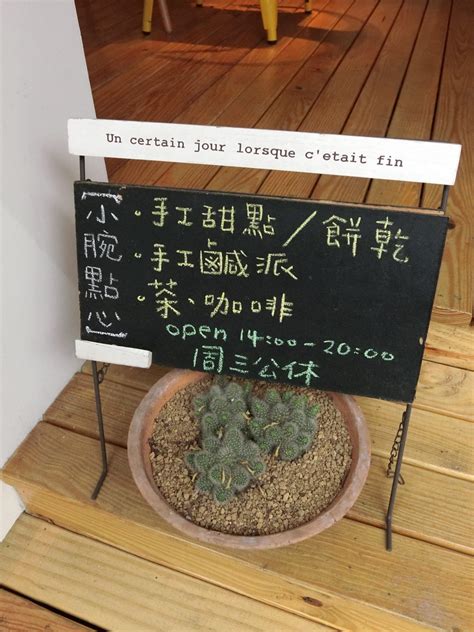 Un certain jour lorsque c'etait fin
[小腕點心]
·手工甜點/餅乾
·手工鹹派
·茶、咖啡
open 14:00-20:00
周三公休